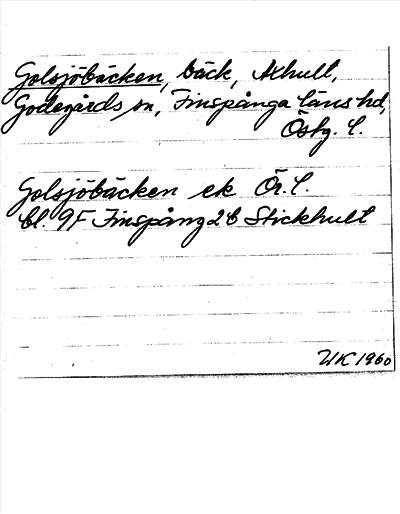 Golsjöbäcken, bäck, Axhult,
Godegårds sn, Finspånga läns hd,
Östg. l.
Golsjöbäcken ek Ör. l.
bl. 9F Finspång 2b Stickhult
UK 1960